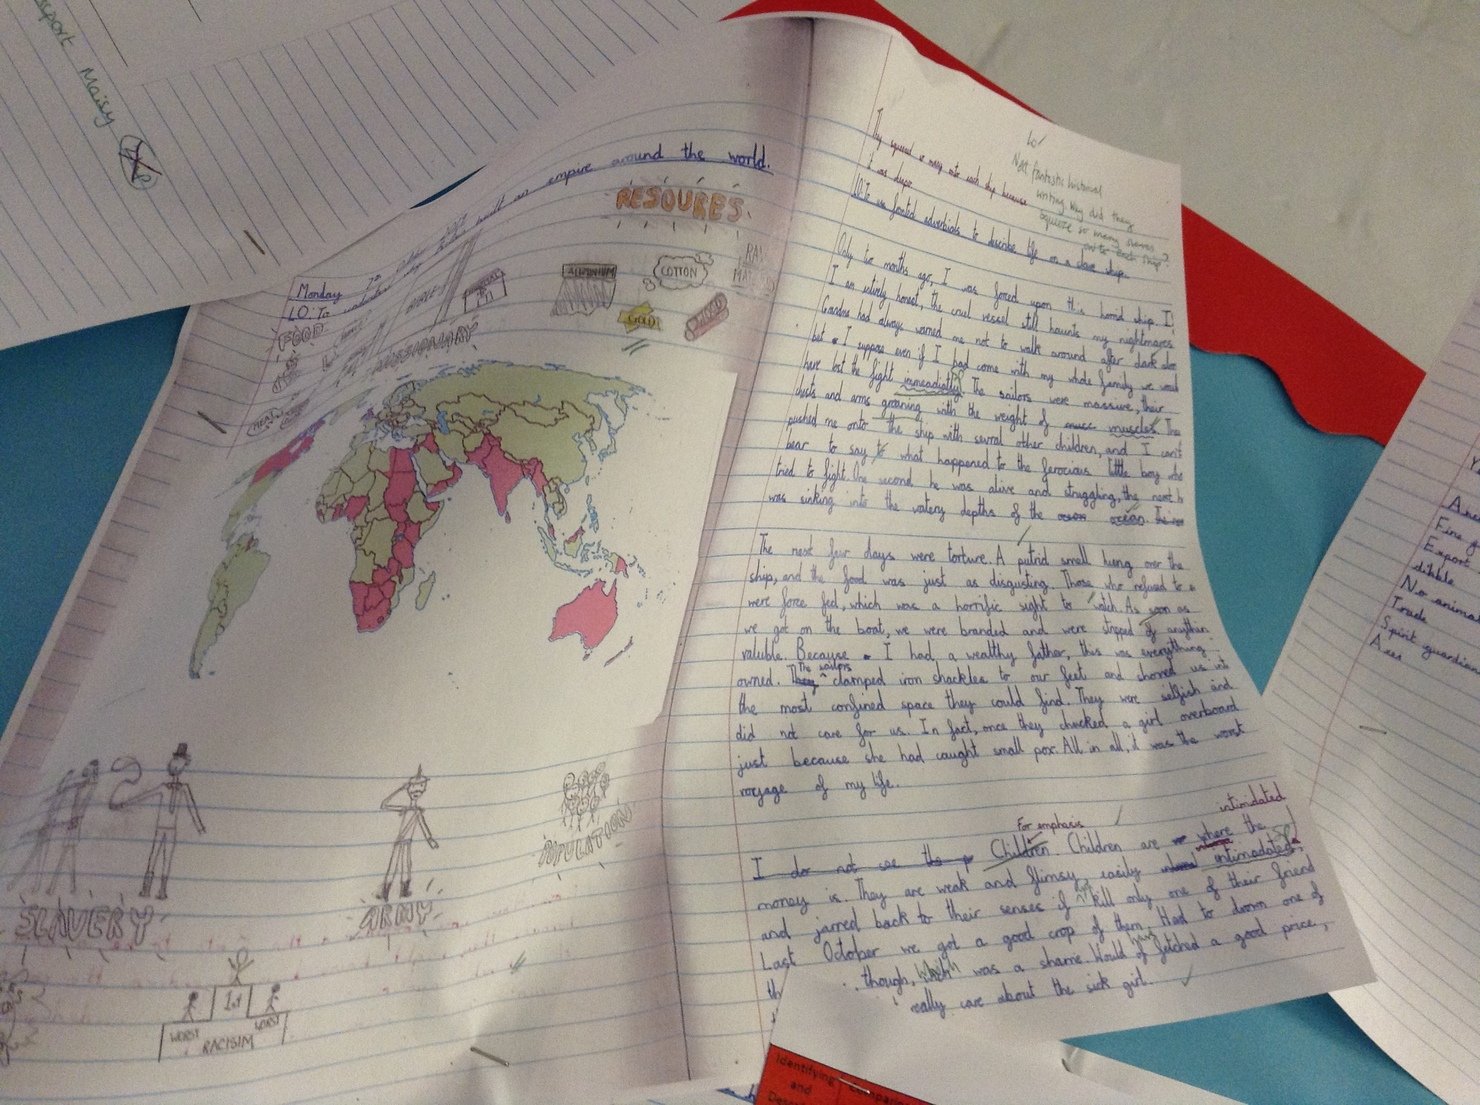 sport Maisy
Monday
LO: To understand built an empire around the world.
FOOD
MISSIONARY
RESOURES
ALUMINIUM
COTTON
RAW
GOLD
WOOD
SLAVERY
ARMY
POPULATION
1st
WORST
WORST
RACISIM
LO ✓
Neil fantastic historical
writing why did they
squeeze so many slaves
onto each ship?
They squeezed so many onto each ship because
I was
LO: To use fronted adverbials to describe life on a slave ship.
Only two months ago, I was forced upon this horrid ship. If
I am entirely honest, the cruel vessel still haunts my nightmares.
Grandma had always warned me not to walk around after dark alone
but I suppose even if I had come with my whole family we would
have lost the fight immeadiatly. The sailors were massive, their
chests and arms groaning with the weight of muscles. They
pushed me onto the ship with several other children, and I can't
bear to say to what happened to the ferocious little boy who
tried to fight. One second he was alive and struggling, the next he
was sinking into the watery depths of the ocean
The next few days were torture. A putrid small hung over the
ship, and the food was just as disgusting. Those who refused to
were force fed, which was a horrific sight to watch. As soon as
we got on the boat, we were branded and were stripped of anything
valuble. Because I had a wealthy father, this was everything
owned. They The sailors clamped iron shackles to our feet and shoved us into
the most confined space they could find. They were selfish and
did not care for us. In fact, once they chucked a girl overboard
just because she had caught small pox. All in all, it was the worst
voyage of my life.
For emphasis
intimidated
I do not see the p Children. Children are where the
money is. They are weak and flimsy, easily intimadated,
and jarred back to their senses if kill only one of their friend
Last October we got a good crop of them. Had to drown one of
though, which was a shame. Would of have fetched a good price,
really care about the sick girl.
Fine
Export
dibble
No animal
Trade
Spirit guardian
Axes
Identifying
and